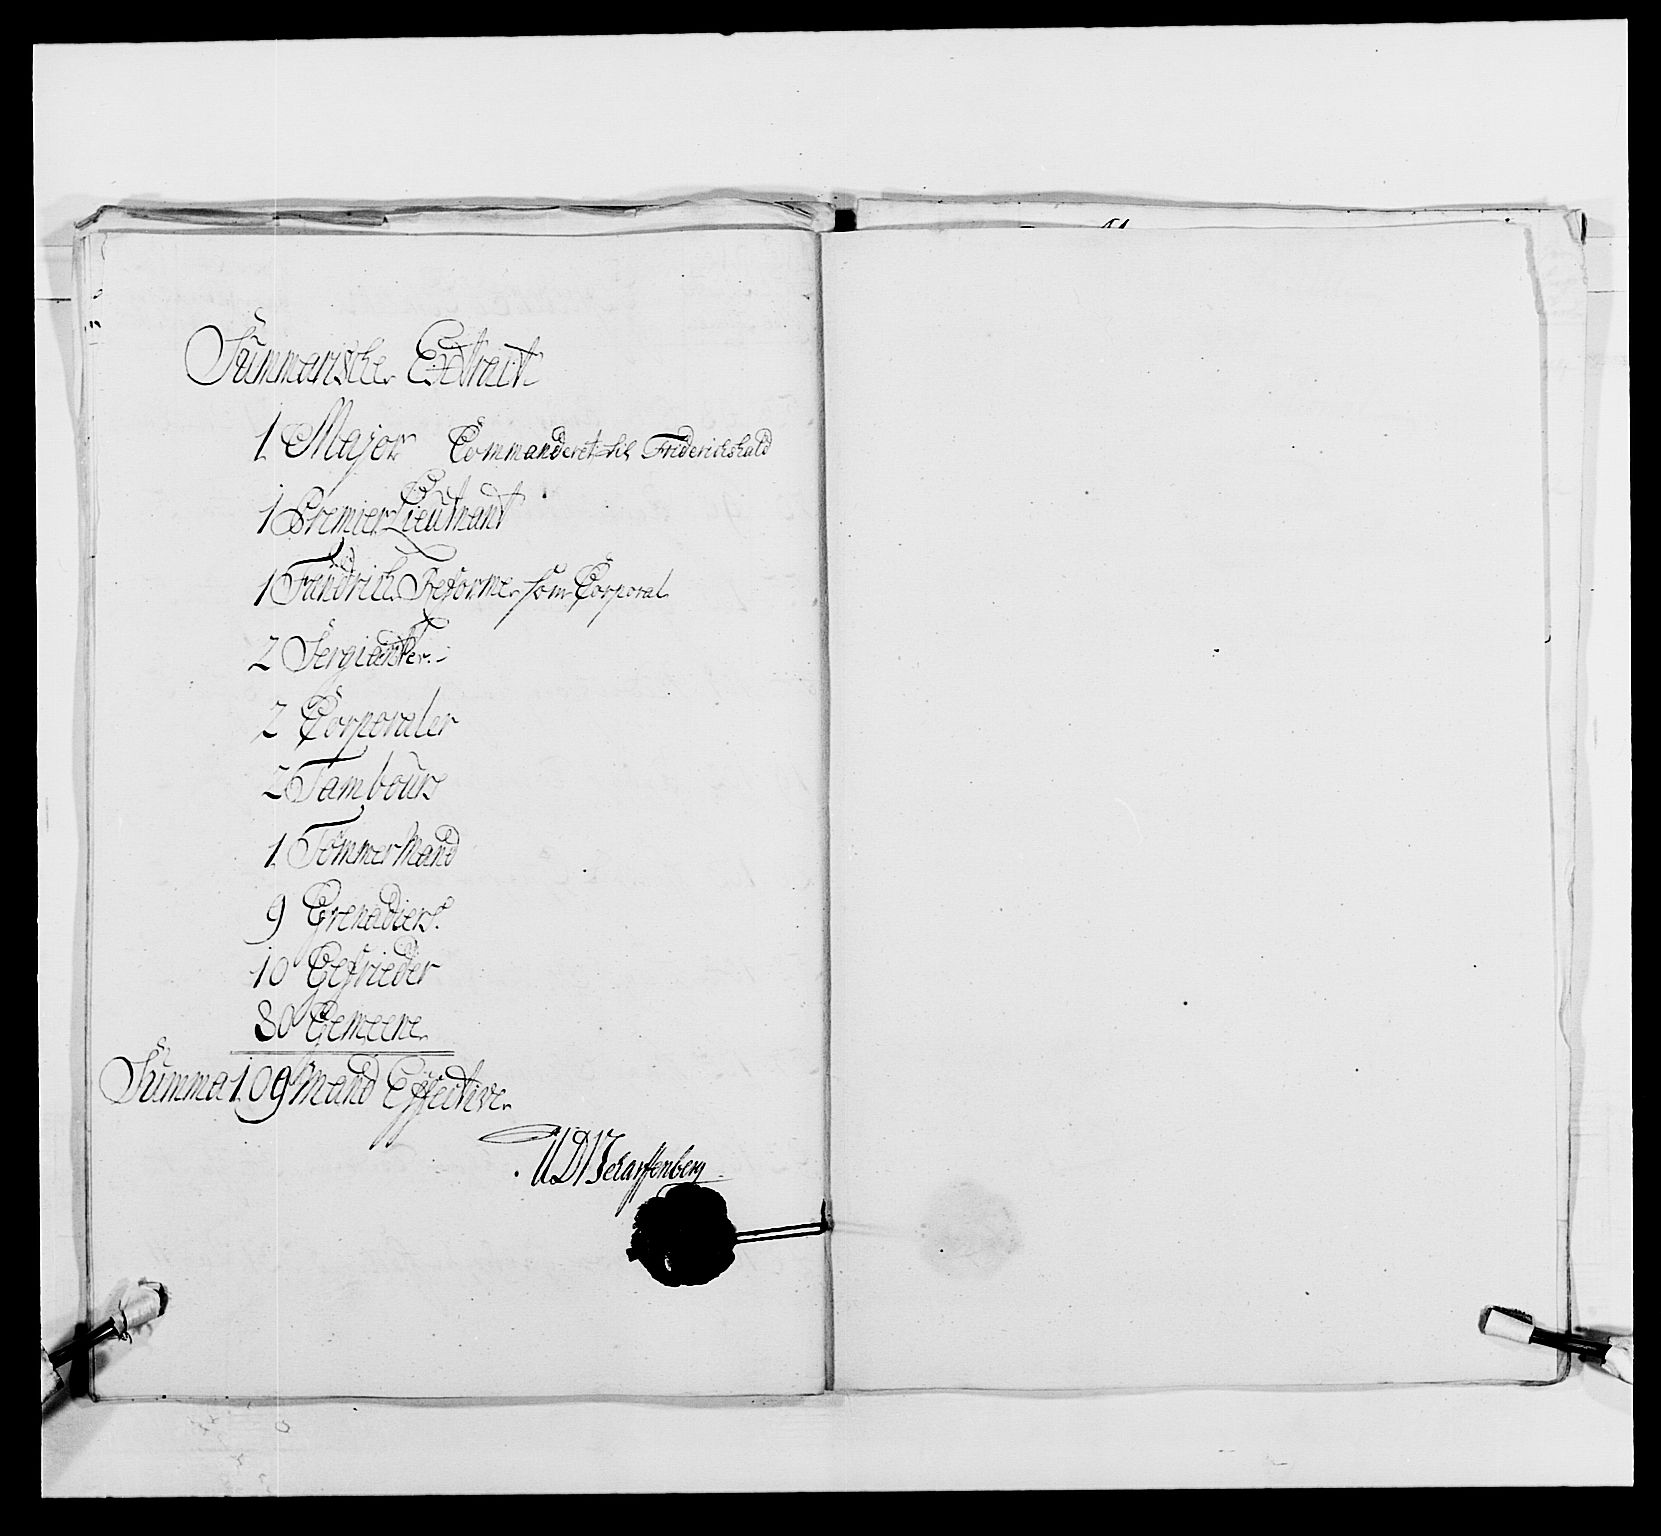 Summarischer Extract
1 Major Commanderet til Friderichshald
1 Premier Lieutnant
1 Fändrich Reforme som Corporal
2 Sergianter
2 Corporaler
2 Tambours
1 Tömmermand
9 Grenadiers
10 Gefrieder
80 Gemeene
Summa 109 Mand Effective
Scharffenberg